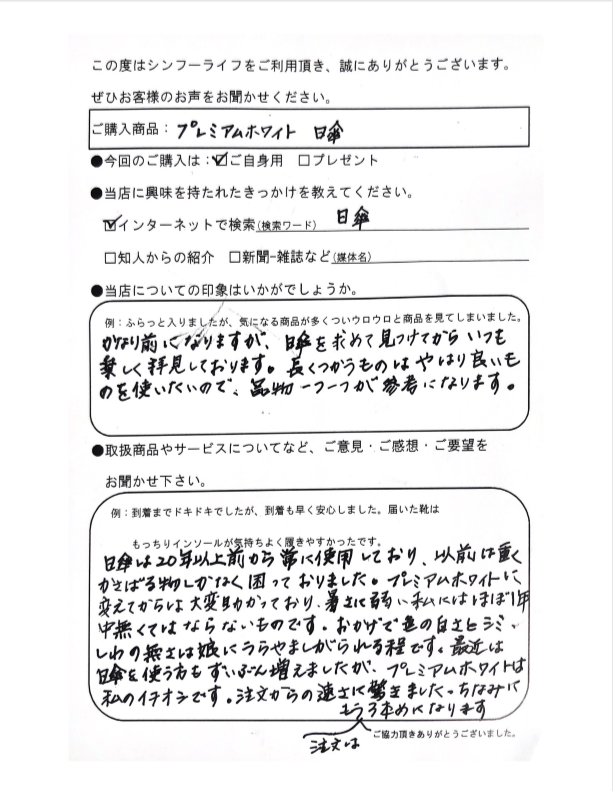 この度はシンフーライフをご利用頂き、誠にありがとうございます。
ぜひお客様のお声をお聞かせください。
ご購入商品：プレミアムホワイト 日傘
●今回のご購入は：☑ご自身用 □プレゼント
●当店に興味を持たれたきっかけを教えてください。
☑インターネットで検索(検索ワード) 日傘
□知人からの紹介 □新聞-雑誌など(媒体名)
●当店についての印象はいかがでしょうか。
例：ふらっと入りましたが、気になる商品が多くついウロウロと商品を見てしまいました。
かなり前になりますが、日傘を求めて見つけてからいつも
楽しく拝見しております。長くつかうものはやはり良いも
のを使いたいので、品物一つ一つが参考になります。
●取扱商品やサービスについてなど、ご意見・ご感想・ご要望を
お聞かせ下さい。
例：到着までドキドキでしたが、到着も早く安心しました。届いた靴は
もっちりインソールが気持ちよく履きやすかったです。
日傘は20年以上前から常に使用しており、以前は重く
かさばる物しかなく困っておりました。プレミアムホワイトに
変えてからは大変助かっており、暑さに弱い私にはほぼ1年
中無くてはならないものです。おかげで色の白さとシミ、
しわの無さは娘にうらやましがられる程です。最近は
日傘を使う方もずいぶん増えましたが、プレミアムホワイトは
私のイチオシです。注文からの速さに驚きました。ちなみに
注文は
もう3本めになります
ご協力頂きありがとうございました。